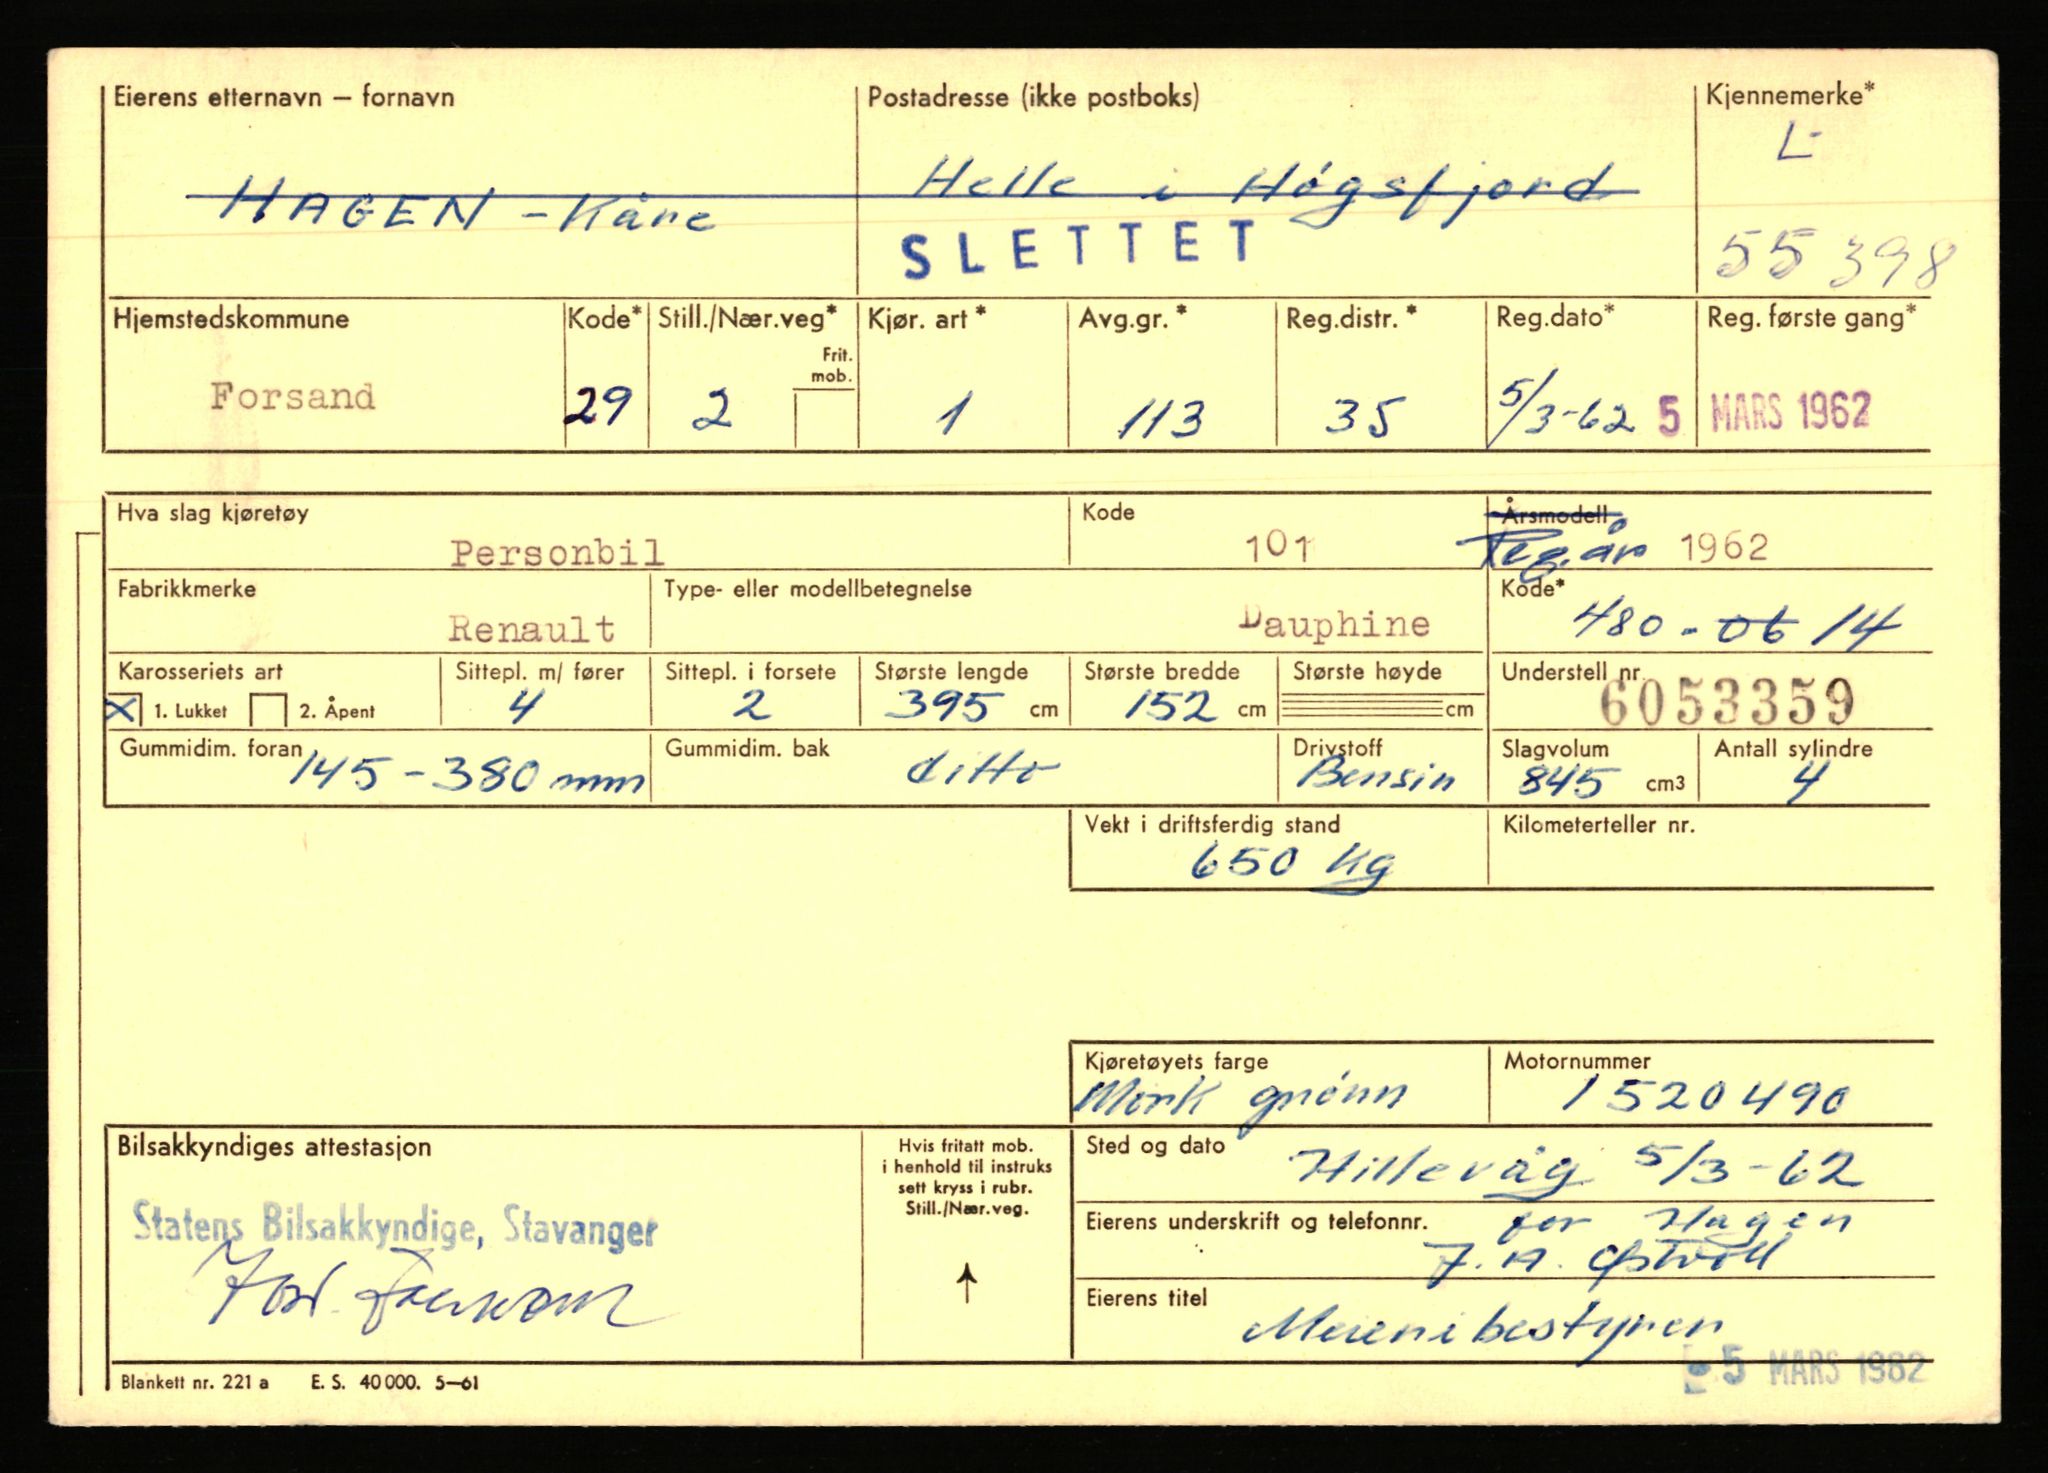 Eierens etternavn – fornavn
Postadresse (ikke postboks)
Kjennemerke*
L-
HAGEN - Kåre
Helle i Høgsfjord
SLETTET
55398
Hjemstedskommune
Kode*
Still./Nær.veg*
Frit. mob.
Kjør. art*
Avg.gr.*
Reg.distr.*
Reg.dato*
Reg. første gang*
Forsand
29
2
1
113
35
5/3-62
5 MARS 1962
Hva slag kjøretøy
Personbil
Kode
101
Årsmodell
Reg.år 1962
Fabrikkmerke
Renault
Type- eller modellbetegnelse
Dauphine
Kode*
480 - 06 14
Karosseriets art
X 1. Lukket 2. Åpent
Sittepl. m/ fører
4
Sittepl. i forsete
2
Største lengde
395 cm
Største bredde
152 cm
Største høyde
cm
Understell nr.
6053359
Gummidim. foran
145-380 mm
Gummidim. bak
ditto
Drivstoff
Bensin
Slagvolum
845 cm3
Antall sylindre
4
Vekt i driftsferdig stand
650 kg
Kilometerteller nr.
Kjøretøyets farge
Mørk grønn
Motornummer
1520490
Bilsakkyndiges attestasjon
Statens Bilsakkyndige, Stavanger
Hvis fritatt mob.
i henhold til instruks
sett kryss i rubr.
Still./Nær.veg.
Sted og dato
Hillevåg 5/3-62
Eierens underskrift og telefonnr.
for Hagen
Eierens titel
Meieribestyrer
5 MARS 1962
Blankett nr. 221 a E. S. 40 000. 5–61